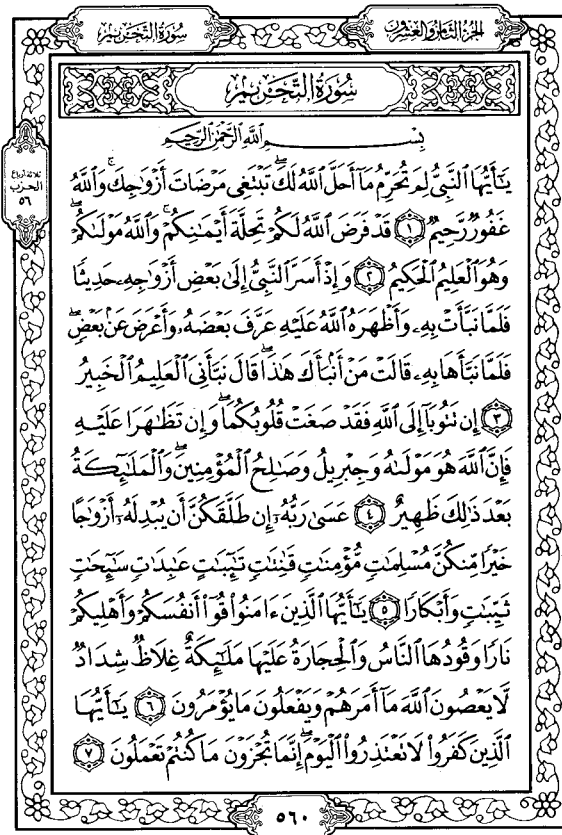 الجزء الثامن والعشرون
سورة التحريم
سُورَةُ التَّحْرِيمِ
بِسْمِ ٱللَّهِ ٱلرَّحْمَٰنِ ٱلرَّحِيمِ
يَٰٓأَيُّهَا ٱلنَّبِيُّ لِمَ تُحَرِّمُ مَآ أَحَلَّ ٱللَّهُ لَكَۖ تَبْتَغِي مَرْضَاتَ أَزْوَٰجِكَۚ وَٱللَّهُ
غَفُورٌ رَّحِيمٌ ١ قَدْ فَرَضَ ٱللَّهُ لَكُمْ تَحِلَّةَ أَيْمَٰنِكُمْۚ وَٱللَّهُ مَوْلَىٰكُمْۖ
وَهُوَ ٱلْعَلِيمُ ٱلْحَكِيمُ ٢ وَإِذْ أَسَرَّ ٱلنَّبِيُّ إِلَىٰ بَعْضِ أَزْوَٰجِهِۦ حَدِيثًا
فَلَمَّا نَبَّأَتْ بِهِۦ وَأَظْهَرَهُ ٱللَّهُ عَلَيْهِ عَرَّفَ بَعْضَهُۥ وَأَعْرَضَ عَنۢ بَعْضٖۖ
فَلَمَّا نَبَّأَهَا بِهِۦ قَالَتْ مَنْ أَنۢبَأَكَ هَٰذَاۖ قَالَ نَبَّأَنِيَ ٱلْعَلِيمُ ٱلْخَبِيرُ
٣ إِن تَتُوبَآ إِلَى ٱللَّهِ فَقَدْ صَغَتْ قُلُوبُكُمَاۖ وَإِن تَظَٰهَرَا عَلَيْهِ
فَإِنَّ ٱللَّهَ هُوَ مَوْلَىٰهُ وَجِبْرِيلُ وَصَٰلِحُ ٱلْمُؤْمِنِينَۖ وَٱلْمَلَٰٓئِكَةُ
بَعْدَ ذَٰلِكَ ظَهِيرٌ ٤ عَسَىٰ رَبُّهُۥٓ إِن طَلَّقَكُنَّ أَن يُبْدِلَهُۥٓ أَزْوَٰجًا
خَيْرًا مِّنكُنَّ مُسْلِمَٰتٍ مُّؤْمِنَٰتٍ قَٰنِتَٰتٍ تَٰٓئِبَٰتٍ عَٰبِدَٰتٍ سَٰٓئِحَٰتٍ
ثَيِّبَٰتٍ وَأَبْكَارًا ٥ يَٰٓأَيُّهَا ٱلَّذِينَ ءَامَنُوا۟ قُوٓا۟ أَنفُسَكُمْ وَأَهْلِيكُمْ
نَارًا وَقُودُهَا ٱلنَّاسُ وَٱلْحِجَارَةُ عَلَيْهَا مَلَٰٓئِكَةٌ غِلَاظٌ شِدَادٌ
لَّا يَعْصُونَ ٱللَّهَ مَآ أَمَرَهُمْ وَيَفْعَلُونَ مَا يُؤْمَرُونَ ٦ يَٰٓأَيُّهَا
ٱلَّذِينَ كَفَرُوا۟ لَا تَعْتَذِرُوا۟ ٱلْيَوْمَۖ إِنَّمَا تُجْزَوْنَ مَا كُنتُمْ تَعْمَلُونَ ٧
ثلاثة أرباع
الحزب
٥٦
٥٦٠